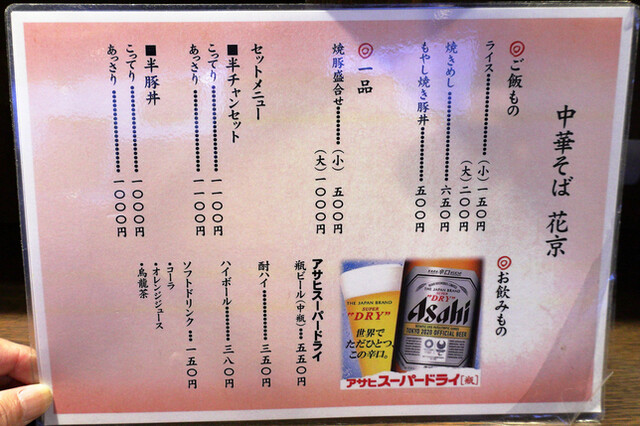 中華そば 花京
◎ご飯もの
ライス………(小)一五〇円
(大)二〇〇円
焼きめし………六五〇円
もやし焼き豚丼………五〇〇円
◎一品
焼豚盛合せ………(小)五〇〇円
(大)一〇〇〇円
セットメニュー
■半チャンセット
こってり………一一〇〇円
あっさり………一一〇〇円
■半豚丼
こってり………一〇〇〇円
あっさり………一〇〇〇円
◎お飲みもの
THE JAPAN BRAND
SUPER
"DRY"
世界で
ただひとつ、
この辛口。
THE JAPAN BRAND
SUPER
"DRY"
Asahi
TOKYO 2020 OFFICIAL BEER
アサヒスーパードライ[瓶]
アサヒスーパードライ
瓶ビール(中瓶)…五五〇円
酎ハイ………三五〇円
ハイボール………三八〇円
ソフトドリンク…一五〇円
・コーラ
・オレンジジュース
・烏龍茶